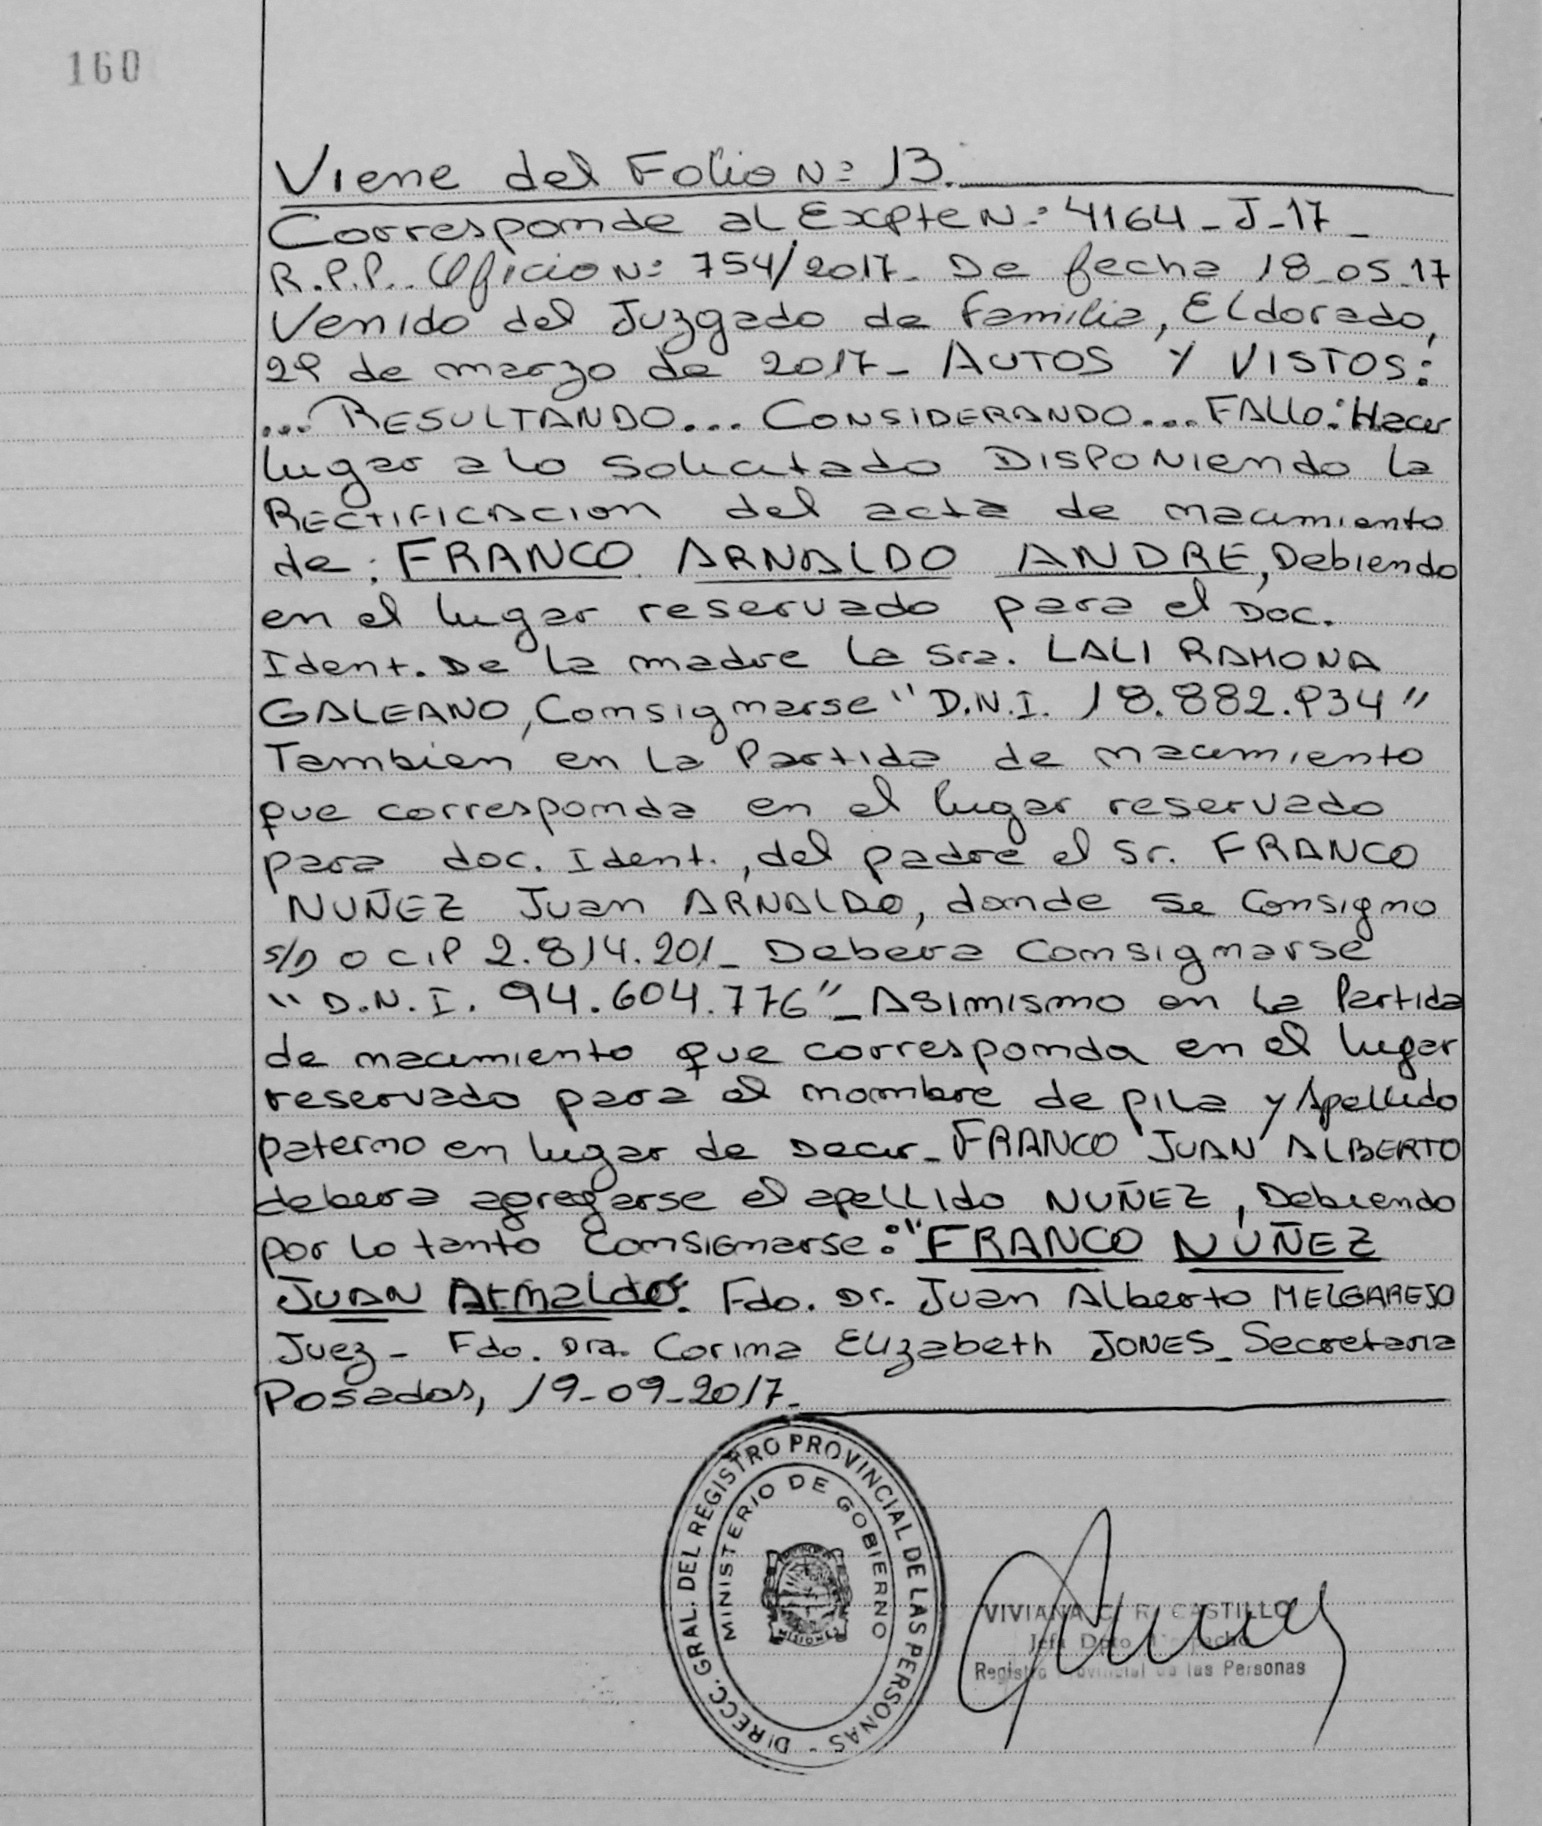 160
Viene del Folio Nº 13.
Corresponde al Expte Nº 4164_J_17_
R.P.P. Oficio Nº 754/2017_ De fecha 18_05_17
Venido del Juzgado de familia, Eldorado,
29 de marzo de 2017_ AUTOS Y VISTOS:
... RESULTANDO... CONSIDERANDO... FALLO: Hacer
lugar a lo solicitado DISPONiendo la
RECTIFICACION del acta de nacimiento
de: FRANCO ARNALDO ANDRE, Debiendo
en el lugar reservado para el Doc.
Ident. De la madre la Sra. LALI RAMONA
GALEANO, Consignarse "D.N.I. 18.882.934"
Tambien en la Partida de nacimiento
que corresponda en el lugar reservado
para doc. Ident., del padre el Sr. FRANCO
NUÑEZ Juan ARNALDO, donde se Consigno
S/D o C.I.P 2.814.201_ Debera Consignarse
"D.N.I. 94.604.776"_ Asimismo en la Partida
de nacimiento que corresponda en el lugar
reservado para el nombre de pila y Apellido
paterno en lugar de Decir_ FRANCO JUAN ALBERTO
debera agregarse el apellido NUÑEZ, Debiendo
por lo tanto Consignarse: "FRANCO NUÑEZ
JUAN Arnaldo". Fdo. Dr. Juan Alberto MELGAREJO
Juez_ Fdo. Dra. Corina Elizabeth JONES_ Secretaria
Posadas, 19_09_2017_
DIRECC. GRAL. DEL REGISTRO PROVINCIAL DE LAS PERSONAS -
MINISTERIO DE GOBIERNO
MISIONES
VIVIANA C. R. CASTILLO
Jefa Dpto Despacho
Registro Provincial de las Personas